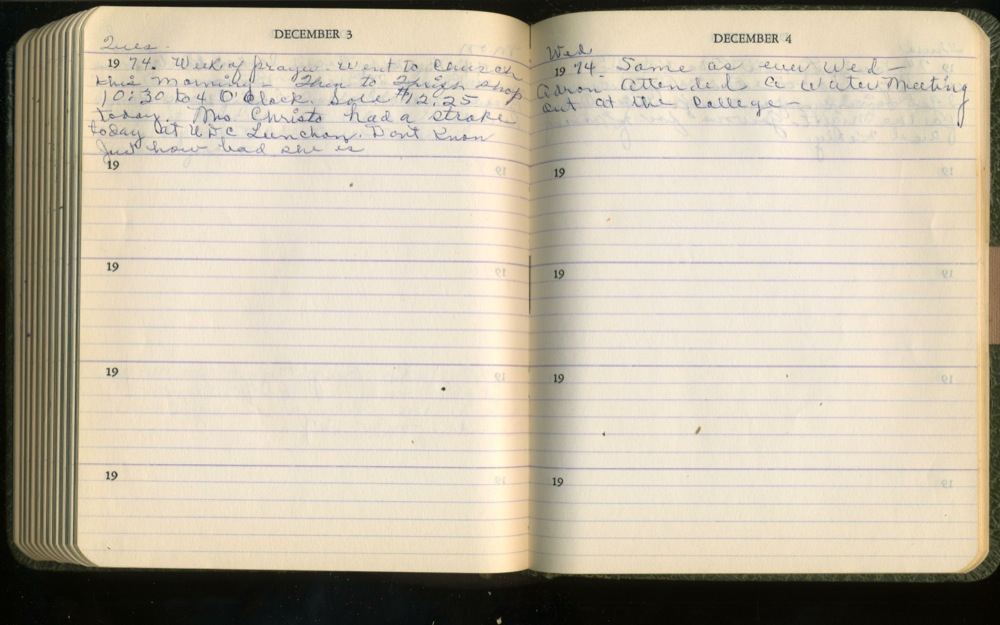 DECEMBER 3
Tues.
1974. Week of prayer. Went to Church
this morning - Then to Thrift shop
10:30 to 4 O'Clock. Sold $12.25
today. Mrs Christo had a stroke
today at UDC Lunchon. Dont Know
Just how bad she is
19
19
19
19
DECEMBER 4
Wed
1974 Same as ever Wed -
Aaron attended a Water Meeting
out at the College -
19
19
19
19